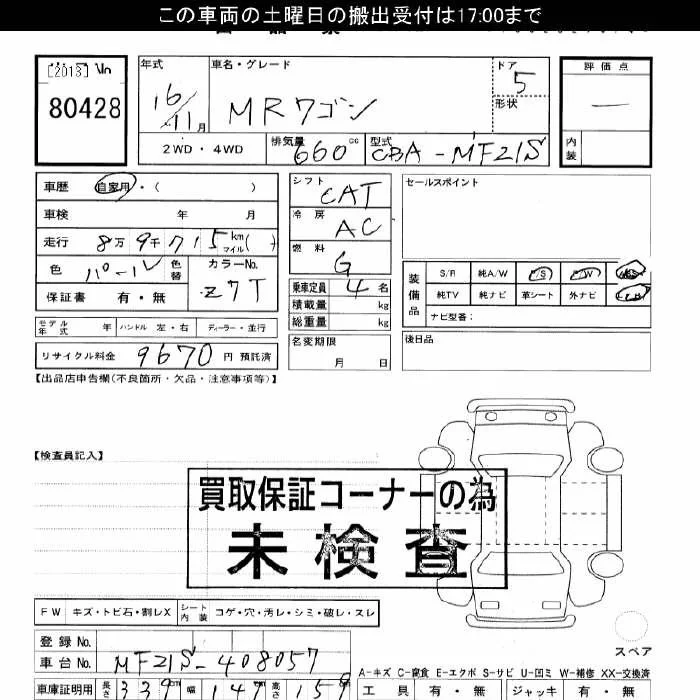 この車両の土曜日の搬出受付は17:00まで
[2013] No
80428
年式
16/11月
車名・グレード
MRワゴン
ドア
5
形状
評価点
—
内装
2WD・4WD
排気量
660cc
型式
CBA-MF21S
車歴 自家用・( )
車検 年 月
走行 8万9千715km マイル( )
色 パール 色替
カラーNo.
Z7T
保証書 有・無
モデル年式 年 ハンドル 左・右 ディーラー・並行
リサイクル料金 9670円 預託済
シフト CAT
冷房 AC
燃料 G
乗車定員 4名
積載量 kg
総重量 kg
名変期限
月 日
セールスポイント
装備品
S/R 純A/W P/S P/W
純TV 純ナビ 革シート 外ナビ
ナビ型番:
後日品
【出品店申告欄(不良箇所・欠品・注意事項等)】
【検査員記入】
買取保証コーナーの為
未検査
FW キズ・トビ石・割レX シート内装 コゲ・穴・汚レ・シミ・破レ・スレ
登録No.
車台No. MF21S-408057
車庫証明用 長さ 339cm 幅 147 高さ 159
スペア
A-キズ C-腐食 E-エクボ S-サビ U-凹ミ W-補修 XX-交換済
工具 有・無 ジャッキ 有・無